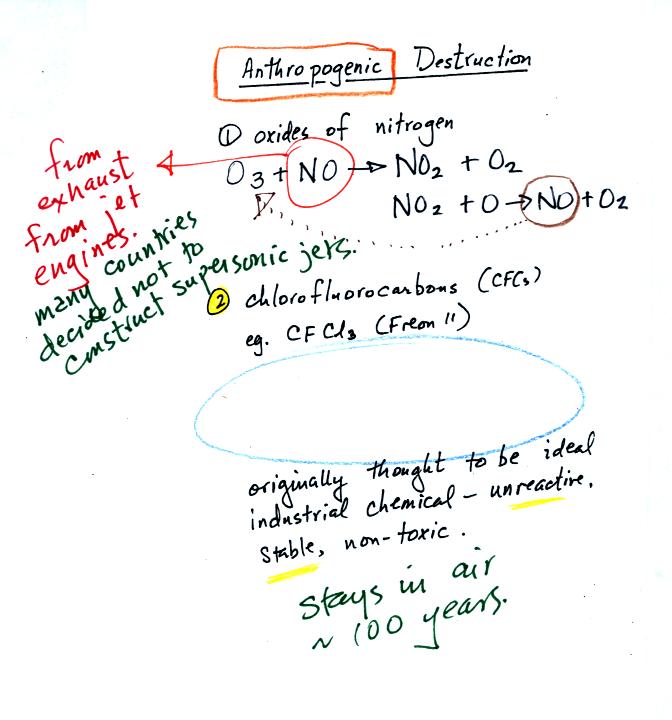 Anthropogenic Destruction
① oxides of nitrogen
O3 + NO → NO2 + O2
NO2 + O → NO + O2
from
exhaust
from jet
engines.
many countries
decided not to
construct supersonic jets.
② chlorofluorocarbons (CFCs)
eg. CFCl3 (Freon 11)
originally thought to be ideal
industrial chemical – unreactive,
stable, non-toxic.
stays in air
~ 100 years.